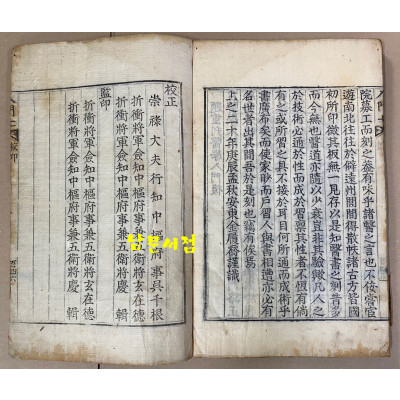 院募工而刻之盖有味乎諸醫之言也不佞嘗宦
遊南北往往於僻遠州郡間得散帙諸古方皆國
初所印微其板無一見存以是知醫書之刻昔多
而今無也醫道亦隨以少衰豈非其驗歟凡人之
於技術必通於性而成於習禀其性者不恒有倘
有之或所習之具不接於耳目何所通而成術乎
書廣布矣而使家畜而戶習人與書相遭亦必有
名世者出其間吾於是刻也竊有俟焉
上之二十六年庚辰孟秋安東金履喬謹識
校正
崇祿大夫行知中樞府事吳千根
折衝將軍僉知中樞府事兼五衛將玄在德
折衝將軍僉知中樞府事兼五衛將慶 輯
監印
折衝將軍僉知中樞府事兼五衛將玄在德
折衝將軍僉知中樞府事兼五衛將慶 輯